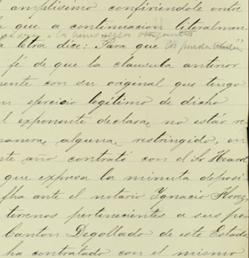 amplisimo confiriendole entre
que a continuacion literalmen
a letra dice: Para que
fé de que la clausula anterior
mente con su original que tengo
ejercicio legitimo de dicho
el exponente declara, no está re
manera alguna restringido, en
este año contrató con el Sr. Heard
que expresa la minuta deposi
fha ante el notario Ignacio
terrenos pertenecientes a sus
Canton Degollado de este Estado
ha contratado con el mismo